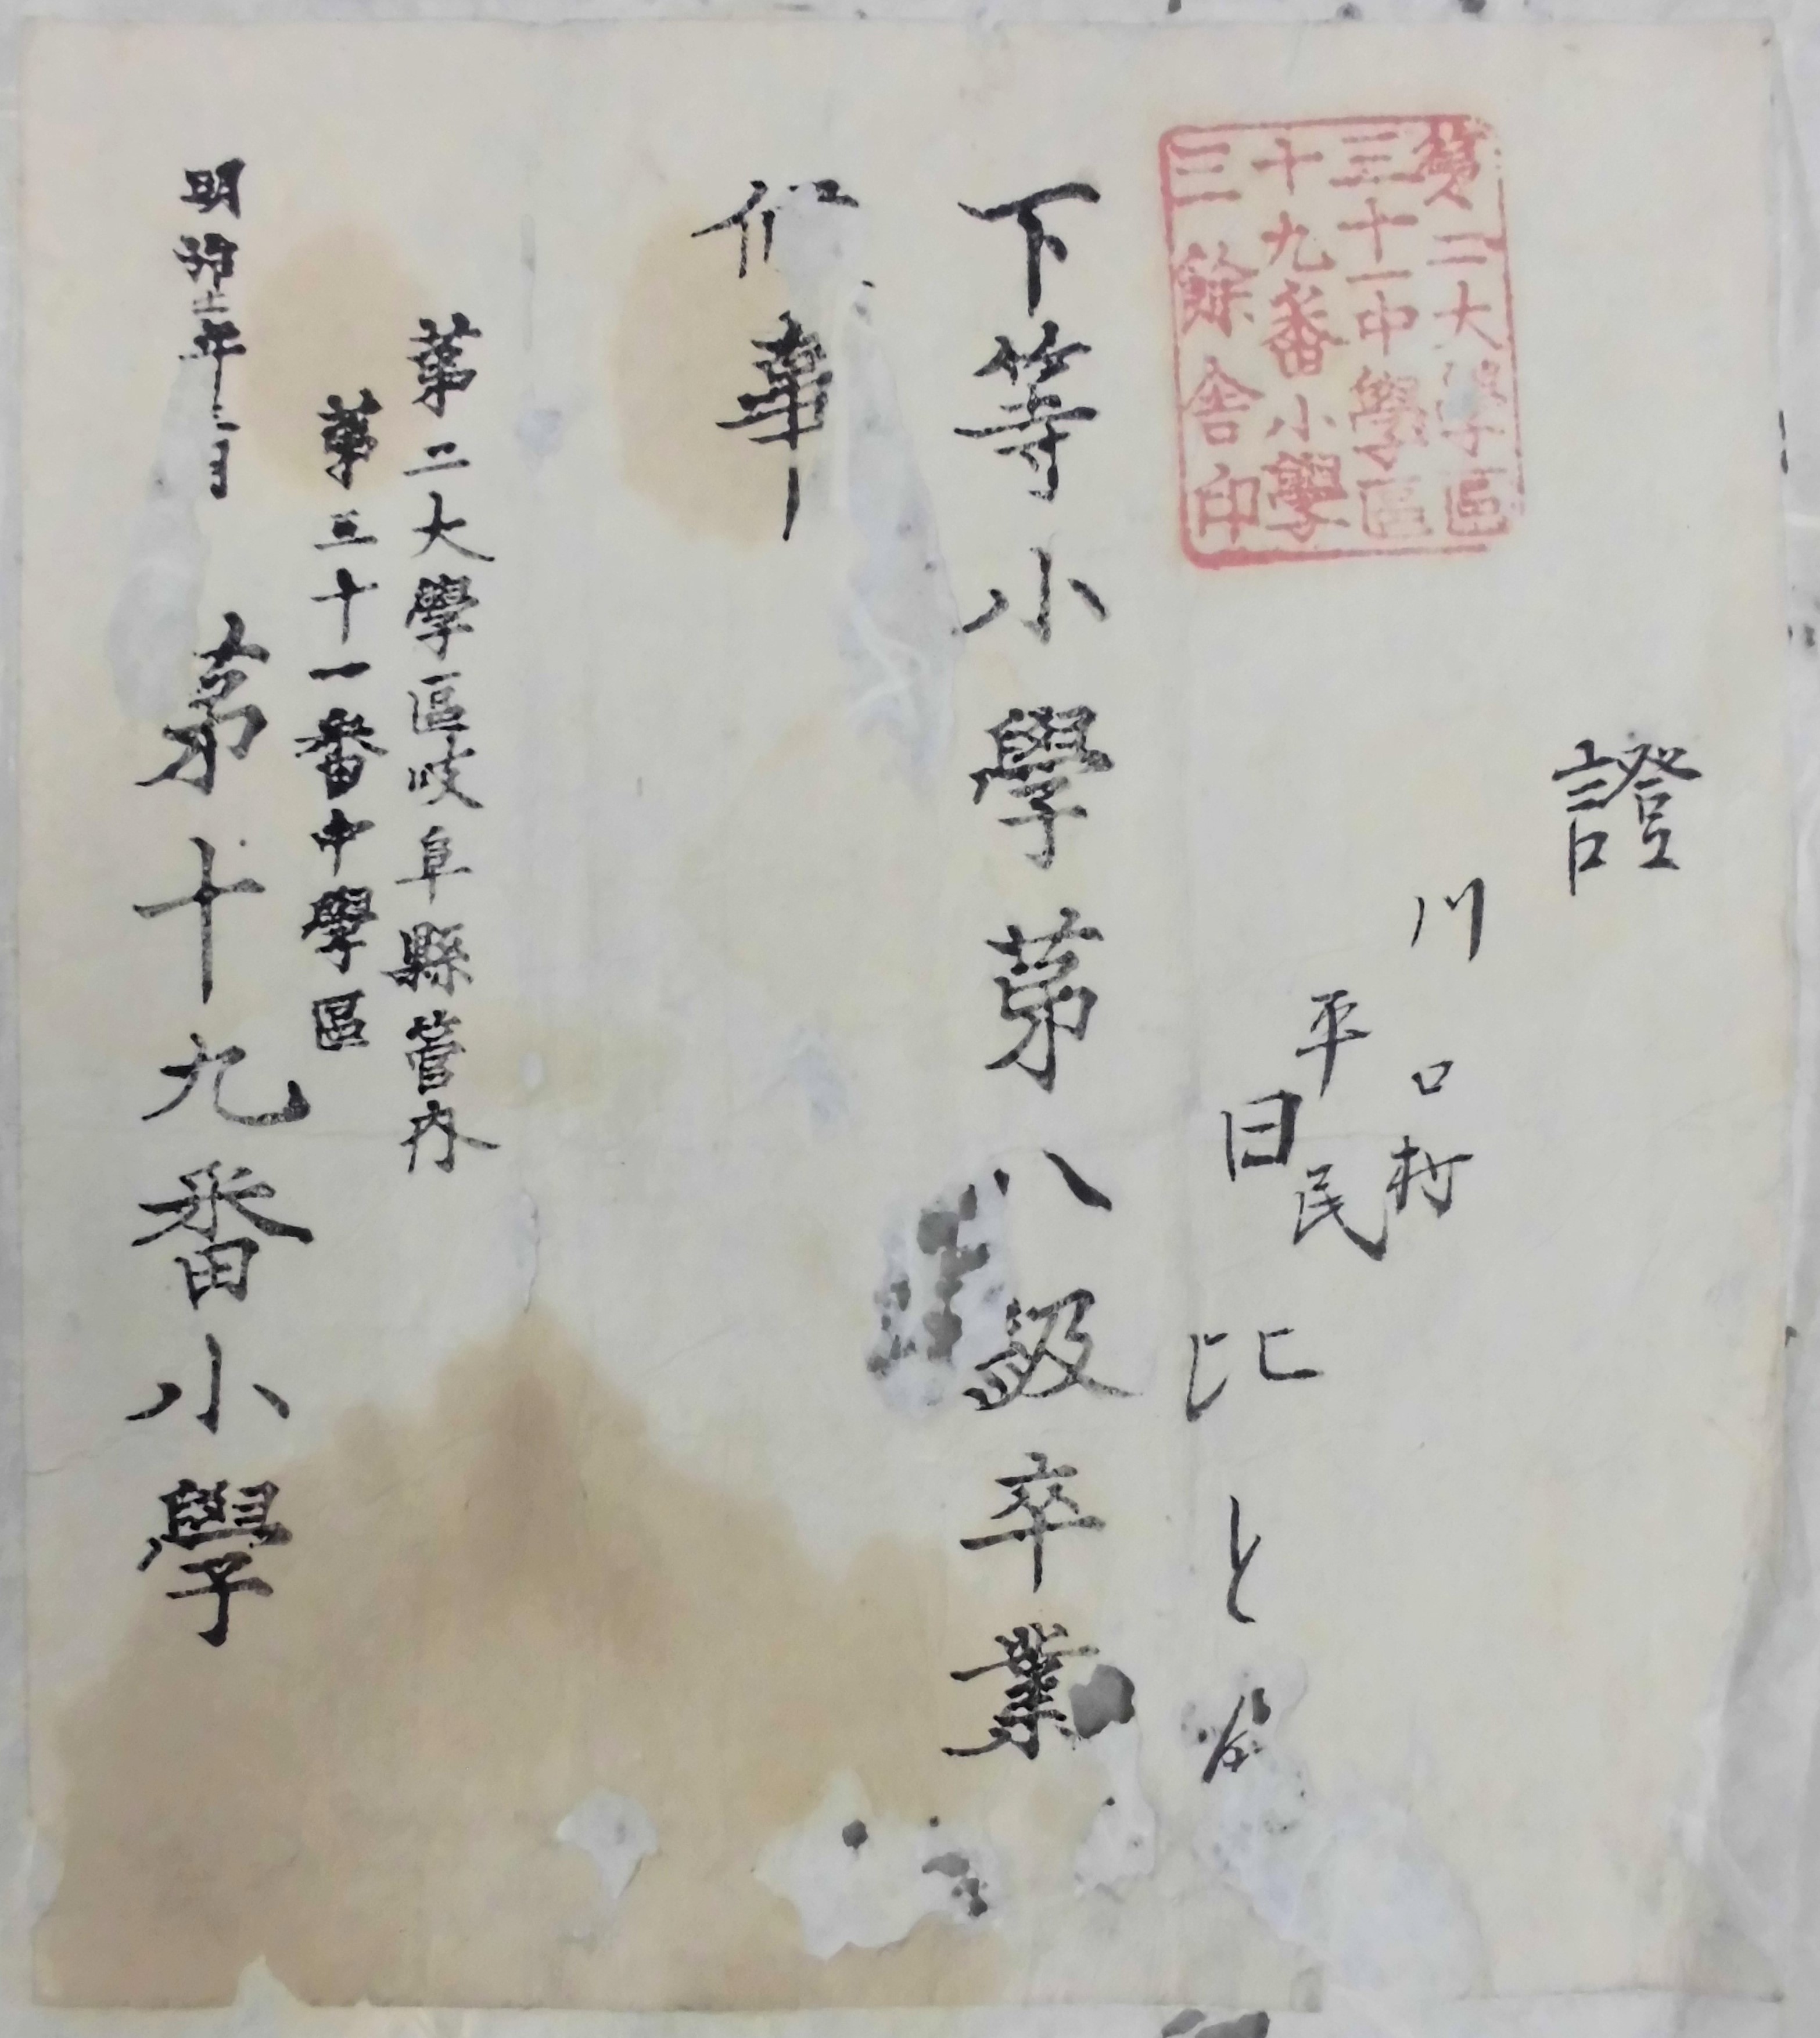 證
第二大學區
三十一中學區
十九番小學
三餘舍印
川口村
平民
日比と
下等小學第八級卒業
候事
第二大學區岐阜縣管内
第三十一番中學區
明治 年二月
第十九番小學